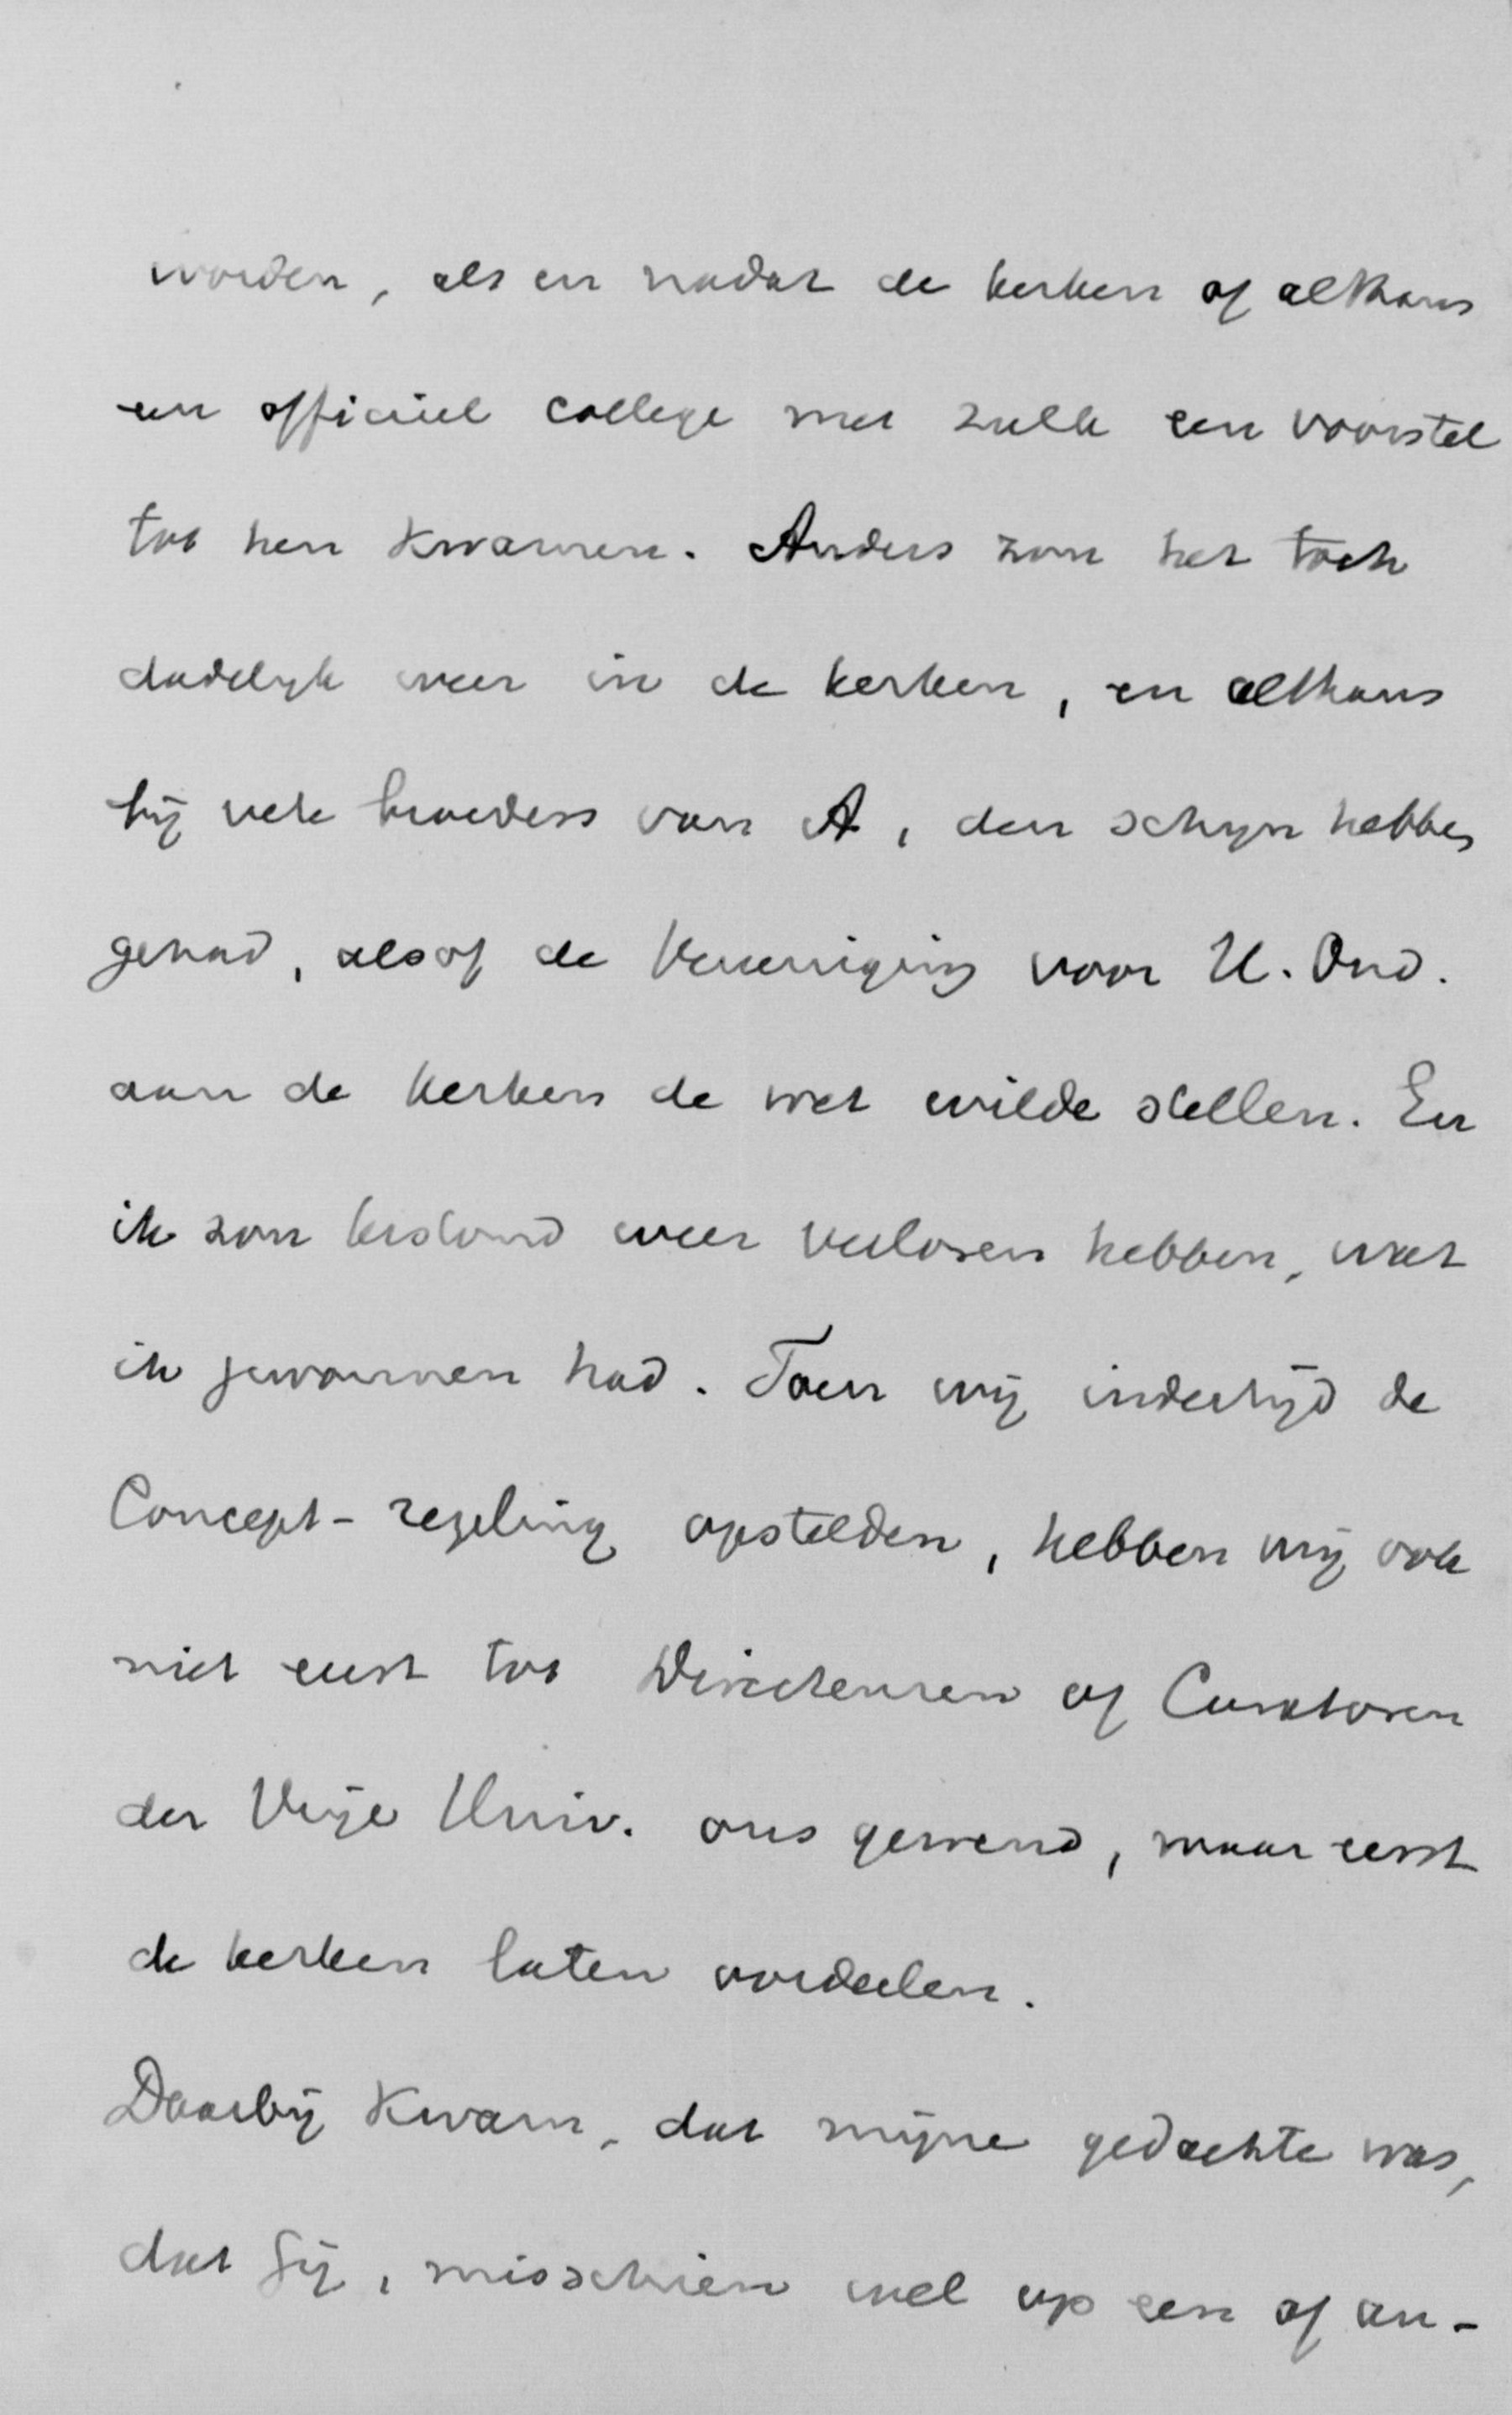 worden, als en nadat de kerken of althans
een officieel college met zulk een voorstel
tot hen kwamen. Anders zou het toch
dadelyk weer in de kerken, en althans
bij vele broeders van A, den schyn hebben
gehad, alsof de Vereeniging voor H. Ond.
aan de kerken de wet wilde stellen. En
ik zou terstond weer verloren hebben, wat
ik gewonnen had. Toen wij indertijd de
Concept-regeling opstelden, hebben wij ook
niet eerst tot Directeuren of Curatoren
der Vrije Univ. ons gewend, maar eerst
de kerken laten oordeelen.
Daarbij kwam, dat mijne gedachte was,
dat Gij, misschien wel op een of an-